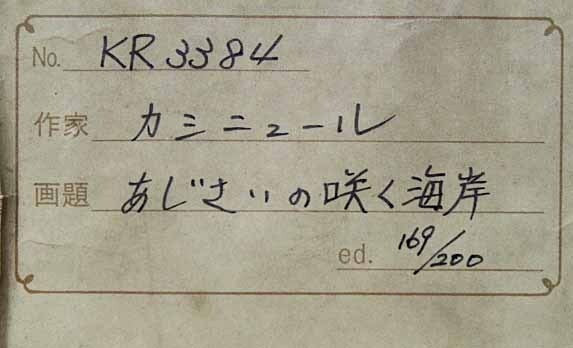 No. KR3384
作家 カミニュール
画題 あじさいの咲く海岸
ed. 169/200